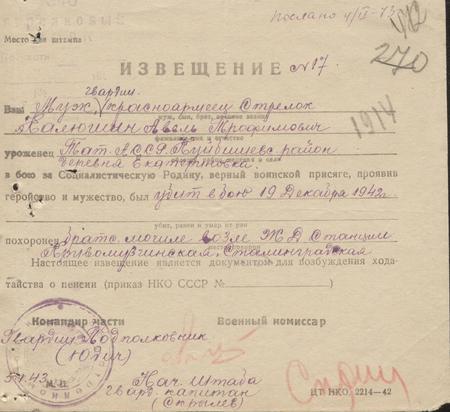 Послано 4/II-43
Место для штампа
412
270
ИЗВЕЩЕНИЕ №17.
гвардии
Ваш Муж, красноармеец Стрелок
муж, сын, брат, военное звание
Калюгин Авель Трофимович
1914
фамилия, имя и отчество
уроженец Тат. АССР, Куйбышевс. район
Деревня Екатериновка
в бою за Социалистическую Родину, верный воинской присяге, проявив
геройство и мужество, был убит в бою 19 Декабря 1942г.
убит, ранен и умер от ран
похоронен братс. могиле возле ЖД Станции
Кривомузгинская, Сталинградская
Настоящее извещение является документом для возбуждения хода-
тайства о пенсии (приказ НКО СССР №
Командир части Военный комиссар
Гвардии Подполковник
(Юдич)
5.1.43 М. П. Нач. Штаба
Гвард. капитан
(Скрылев)
ЦТ НКО. 2214—42